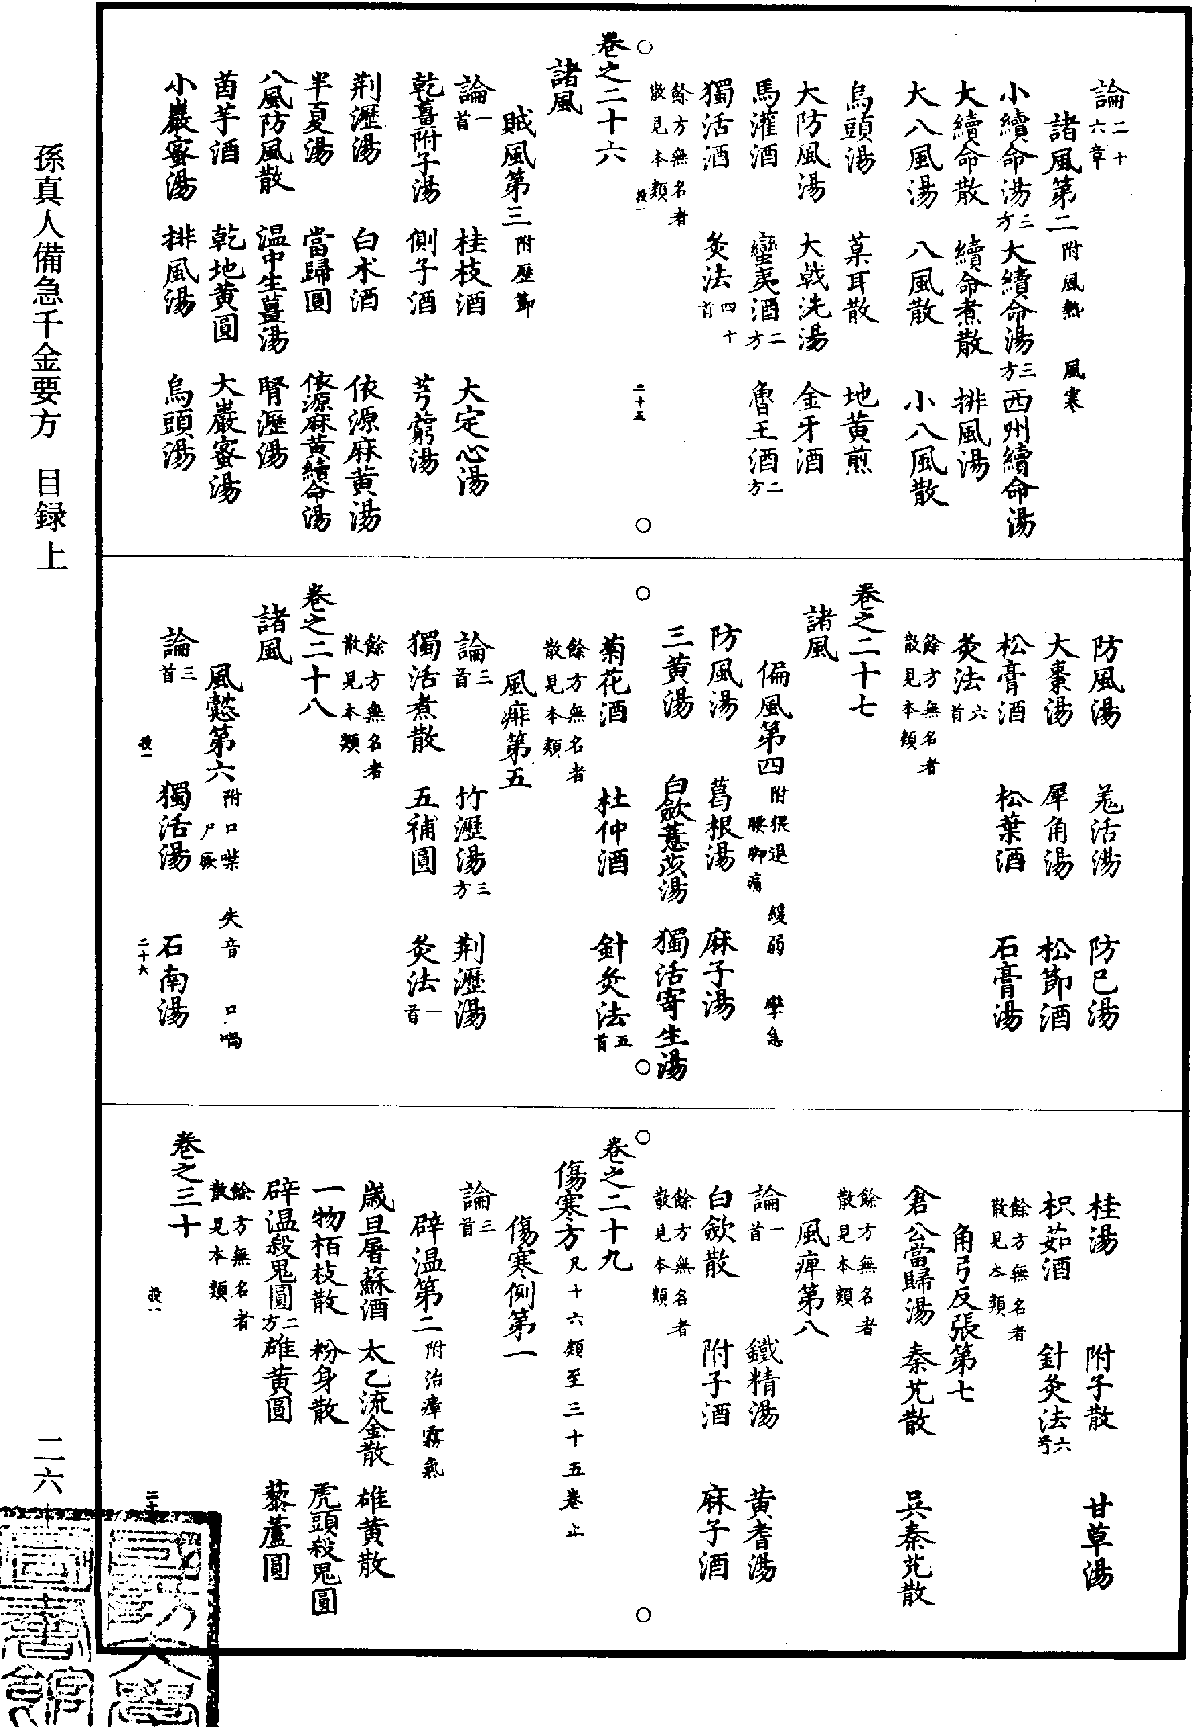 論二十六章
諸風第二附風熱 風寒
小續命湯三方 大續命湯三方 西州續命湯
大續命散 續命煮散 排風湯
大八風湯 八風散 小八風散
烏頭湯 菓耳散 地黄煎
大防風湯 大戟洗湯 金牙酒
馬灌酒 蠻夷酒二方 魯王酒二方
獨活酒 灸法四十首
餘方無名者散見本類
二十五
卷之二十六
諸風
賊風第三附歷節
論一首 桂枝酒 大定心湯
乾薑附子湯 側子酒 芎藭湯
荆瀝湯 白术酒 依源麻黄湯
半夏湯 當歸圓 依源麻黄續命湯
八風防風散 温中生薑湯 腎瀝湯
茵芋酒 乾地黄圓 大巖蜜湯
小巖蜜湯 排風湯 烏頭湯
防風湯 羌活湯 防巳湯
大棗湯 犀角湯 松節酒
松膏酒 松葉酒 石膏湯
灸法六首
餘方無名者散見本類
卷之二十七
諸風
偏風第四附猥退 緩弱 攣急 腰脚痛
防風湯 葛根湯 麻子湯
三黄湯 白歛薏苡湯 獨活寄生湯
菊花酒 杜仲酒 針灸法五首
餘方無名者散見本類
風痱第五
論二首 竹瀝湯三方 荆瀝湯
獨活煮散 五補圓 灸法一首
餘方無名者散見本類
卷之二十八
諸風
風懿第六附口噤 失音 口喎 尸厥
論三首 獨活湯 石南湯
二十六
桂湯 附子散 甘草湯
枳茹酒 針灸法六首
餘方無名者散見本類
角弓反張第七
倉公當歸湯 秦艽散 吴秦艽散
餘方無名者散見本類
風痺第八
論一首 鐵精湯 黄耆湯
白歛散 附子酒 麻子酒
餘方無名者散見本類
卷之二十九
傷寒方凡十六類至三十五卷止
傷寒例第一
論三首
辟温第二附治瘴霧氣
歲旦屠蘇酒 太乙流金散 雄黄散
一物栢枝散 粉身散 虎頭殺鬼圓
辟温殺鬼圓二方 雄黄圓 藜蘆圓
餘方無名者散見本類
卷之三十
孫真人備急千金要方 目録上
二六